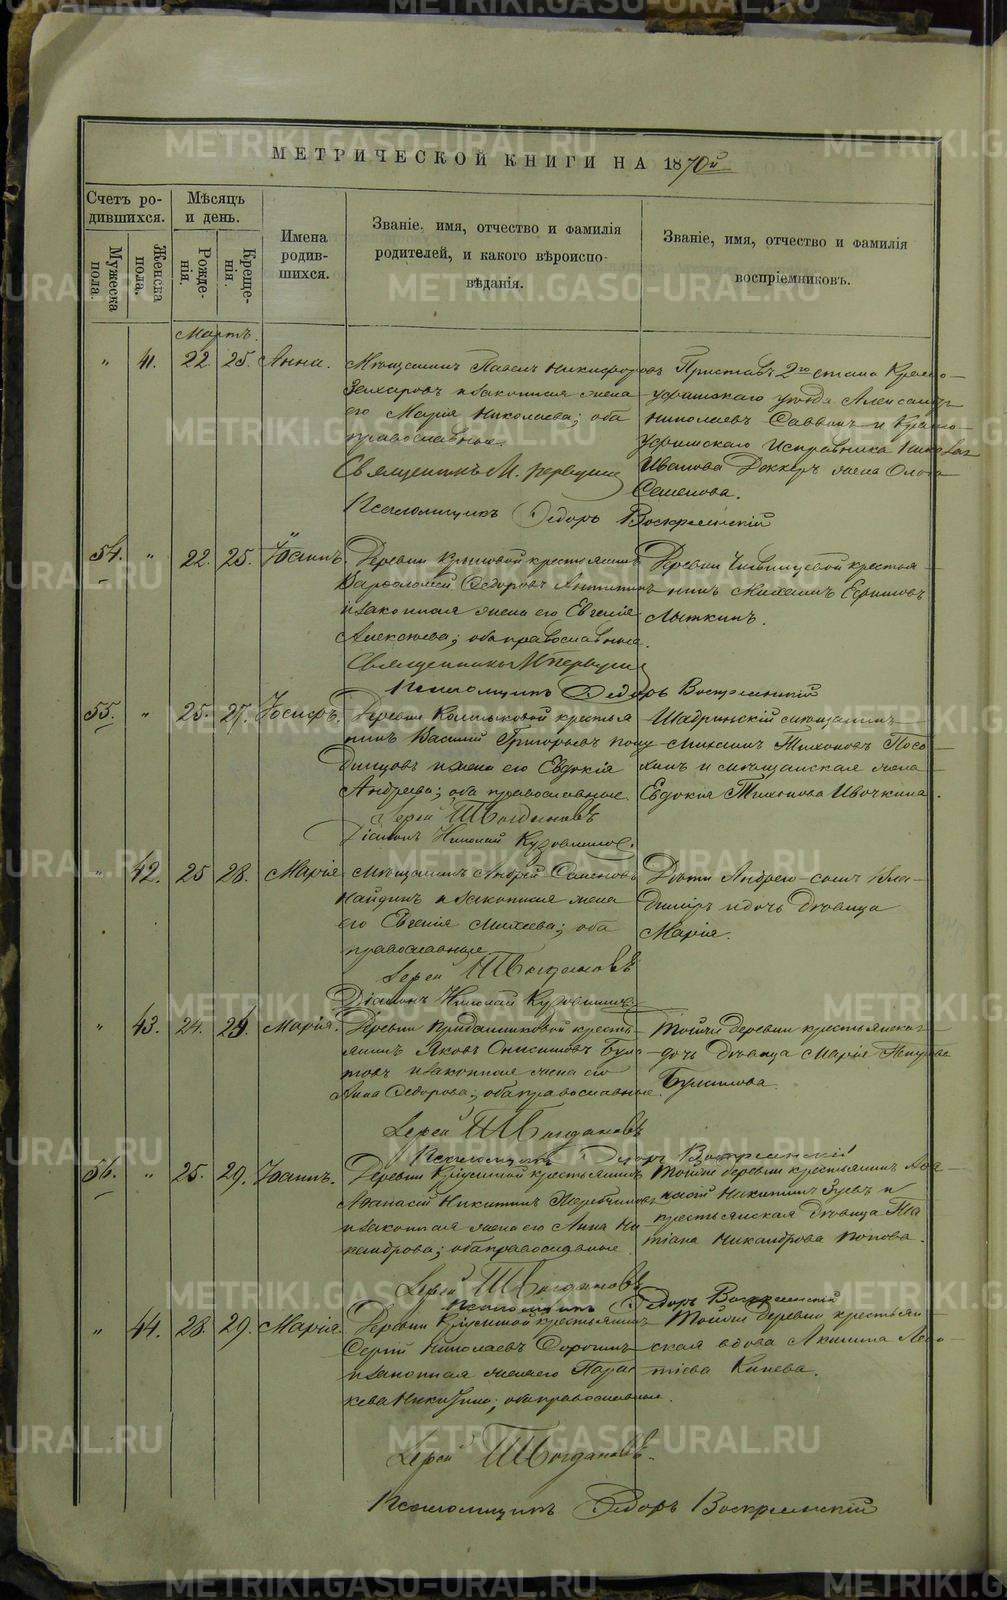 МЕТРИЧЕСКОЙ КНИГИ НА 1870й
Счетъ родившихся.
Мужеска пола.
Женска пола.
Мѣсяцъ и день.
Рожденія.
Крещенія.
Имена родившихся.
Званіе, имя, отчество и фамилія
родителей, и какого вѣроиспо-
вѣданія.
Званіе, имя, отчество и фамилія
воспріемниковъ.
Мартъ.
" 41. 22. 25. Анна.
Мѣщанинъ Павелъ Никифоровъ
Захаровъ и законная жена
его Марія Николаева; оба
православные.
Приставъ 2го стана Красно-
уфимскаго уѣзда Александръ
Николаевъ Саввинъ и Красно-
уфимскаго Исправника Николая
Иванова Деккеръ жена Ольга
Семенова.
Священникъ М.
Псаломщикъ Ѳедоръ Воскресенскій
54. " 22. 25. Іоаннъ.
Деревни крестьянинъ
Варѳоломей Ѳедоровъ
и законная жена его Евгенія
Алексѣева; оба православные.
Деревни крестья-
нинъ Михаилъ Ефимовъ
Лыткинъ.
Священникъ М
Псаломщикъ Ѳедоръ Воскресенскій
55. " 25. 27. Іосифъ.
Деревни крестья
нинъ Василій Григорьевъ
и жена его Евдокія
Андреева; оба православные.
Шадринскій мѣщанинъ
Михаилъ Тихоновъ Посо-
хинъ и мѣщанская жена
Евдокія Тихонова Ивочкина.
Іерей Богдановъ
Діаконъ Николай
" 42. 25 28. Марія
Мѣщанинъ Андрей Семеновъ
Найдинъ и законная жена
его Евгенія Михеева; оба
православные
Дѣти Андрея сынъ Вла-
диміръ и дочь дѣвица
Марія.
Іерей Богдановъ
Діаконъ Николай
" 43. 24. 29. Марія.
Деревни Приданниковой кресть-
янинъ Яковъ Онисимовъ Була-
товъ и законная жена его
Анна Ѳедорова; оба православные.
Тойже деревни крестьянская
дочь дѣвица Марія
Булатова.
Іерей Богдановъ
Псаломщикъ Ѳедоръ Воскресенскій
56. " 25. 29. Іоаннъ.
Деревни крестьянинъ
Аѳанасій Никитинъ Жеребчиковъ
и законная жена его Анна Ни-
кандрова; оба православные
Тойже деревни крестьянинъ
Никитинъ Зуевъ и
крестьянская дѣвица Та
тіана Никандрова Попова.
Іерей Богдановъ
Псаломщикъ Ѳедоръ Воскресенскій
" 44. 28. 29. Марія.
Деревни крестьянинъ
Сергій Николаевъ Дорошинъ
и законная жена его Парас
кева Никитина; оба православные.
Тойже деревни крестьян-
ская вдова Акилина Леон-
тіева Кинева.
Іерей Богдановъ.
Псаломщикъ Ѳедоръ Воскресенскій
METRIKI.GASO-URAL.RU